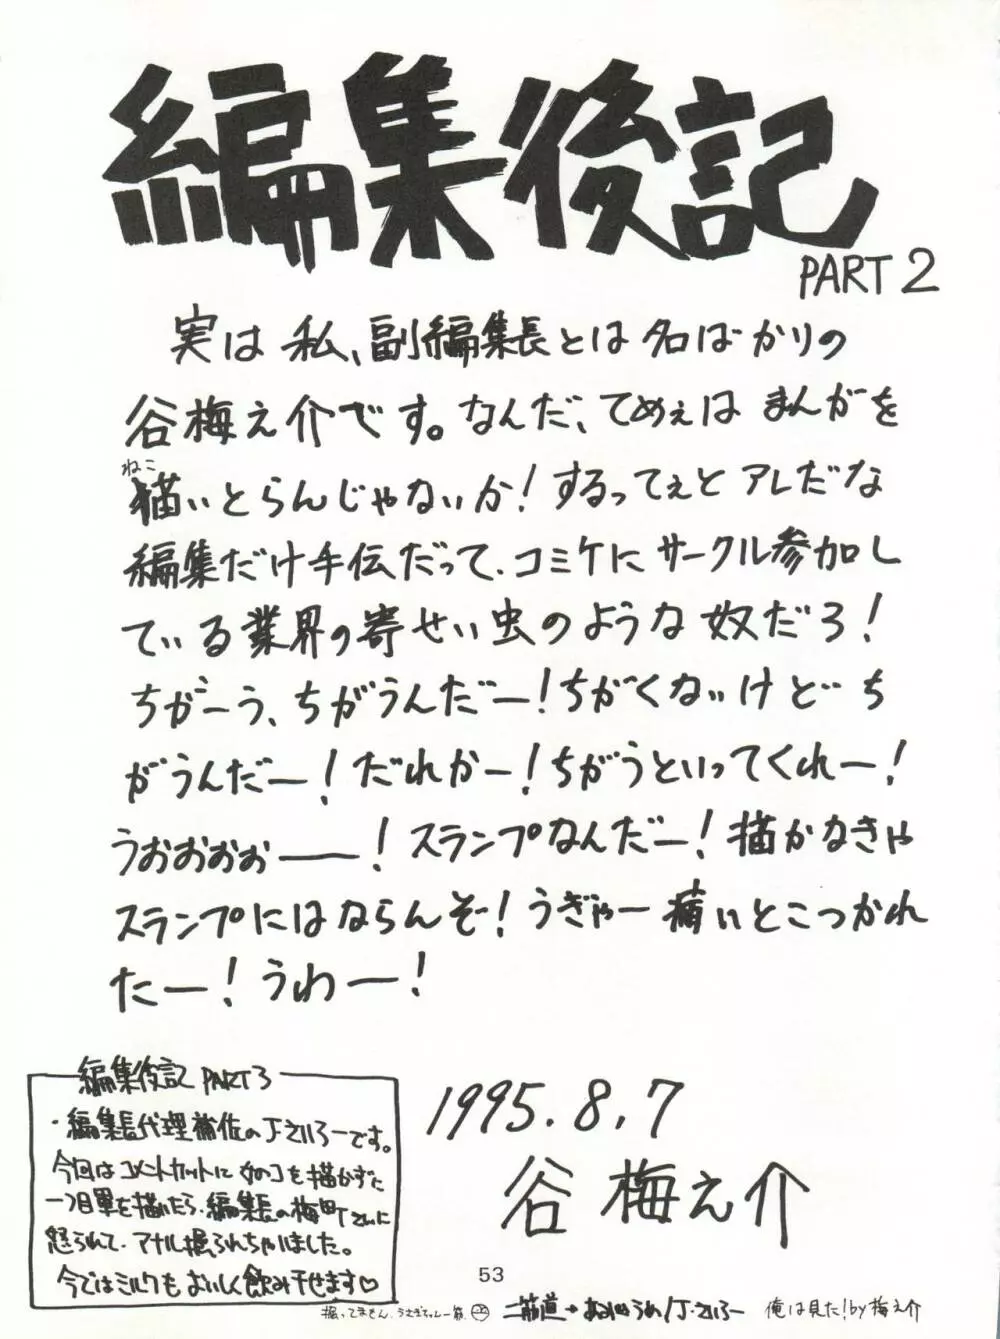 編集後記
PART 2
実は私、副編集長とは名ばかりの
谷梅之介です。なんだ、てめぇは まんがを
ねこ
描いとらんじゃないか!するってぇと アレだな
編集だけ手伝だって、コミケに サークル参加し
ている業界の寄せい虫のような奴だろ!
ちがーう、ちがうんだー!ちがくないけど ち
がうんだー!だれかー!ちがうといってくれー!
うおおおぉ――!スランプなんだー!描かなきゃ
スランプにはならんぞ!うぎゃー 痛いとこつかれ
たー!うわー!
1995.8.7
谷 梅之介
編集後記 PART3
・編集長代理補佐のJ・さいろーです。
今回はコメントカットに 女のコを描かずに
一つ目軍を描いたら、編集長の梅町さんに
怒られて、アナル掘られちゃいました。
今ではミルクもおいしく飲み干せます♡
53
掘ってません。うさぎちゃん一筋。
二筋道→
/J・さいろー
俺は見た!by梅之介